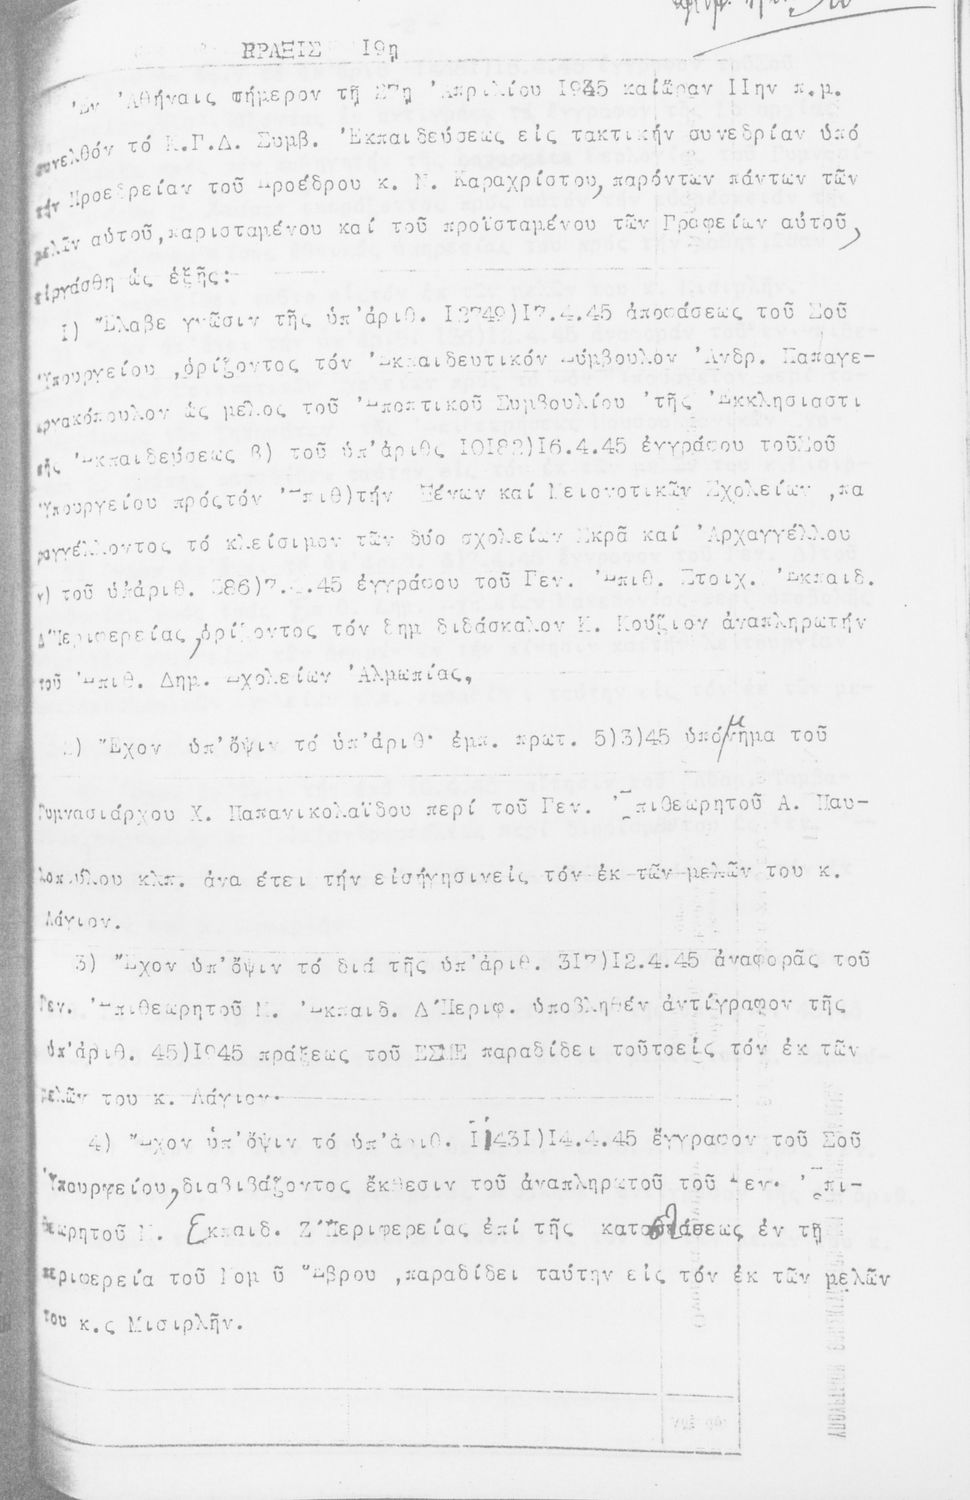 ΠΡΑΞΙΣ 19η
Ἐν Ἀθήναις σήμερον τῇ 27ῃ Ἀπριλίου 1945 καίὥραν 11ην π.μ.
συνελθόν τό Κ.Γ.Δ. Συμβ. Ἐκπαιδεύσεως εἰς τακτικήν συνεδρίαν ὑπό
τήν Προεδρείαν τοῦ Προέδρου κ. Ν. Καραχρίστου, παρόντων πάντων τῶν
μελῶν αὐτοῦ, παρισταμένου καί τοῦ προϊσταμένου τῶν Γραφείων αὐτοῦ,
εἰργάσθη ὡς ἑξῆς:
1) Ἔλαβε γνῶσιν τῆς ὑπ'ἀριθ. 12749)17.4.45 ἀποφάσεως τοῦ Σοῦ
Ὑπουργείου ,ὁρίζοντος τόν Ἐκπαιδευτικόν Σύμβουλον Ἀνδρ. Παπαγε-
ωργακόπουλον ὡς μέλος τοῦ Ἐποπτικοῦ Συμβουλίου 'τῆς Ἐκκλησιαστι
κῆς Ἐκπαιδεύσεως β) τοῦ ὑπ'ἀριθς 10182)16.4.45 ἐγγράφου τοῦΣοῦ
Ὑπουργείου πρόςτόν Ἐπιθ)τήν Ξένων καί Μειονοτικῶν Σχολείων ,πα
ραγγέλλοντος τό κλείσιμον τῶν δύο σχολείων Σκρᾶ καί Ἀρχαγγέλλου
γ) τοῦ ὑπ'ἀριθ. 386)7. .45 ἐγγράφου τοῦ Γεν. Ἐπιθ. Στοιχ. Ἐκπαιδ.
Δ'Περιφερείας, ὁρίζοντος τόν δημ διδάσκαλον Κ. Κούζιον ἀναπληρωτήν
τοῦ Ἐπιθ. Δημ. Σχολείων Ἀλμωπίας,
2) Ἔχον ὑπ'ὄψιν τό ὑπ'ἀριθ· ἐμπ. πρωτ. 5)3)45 ὑπόμνημα τοῦ
Γυμνασιάρχου Χ. Παπανικολαΐδου περί τοῦ Γεν. Ἐπιθεωρητοῦ Α. Παυ-
λοπούλου κλπ. ἀνα έτει τήν εἰσήγησινεἰς τόν ἐκ τῶν μελῶν του κ.
Λάγιον.
3) Ἔχον ὑπ'ὄψιν τό διά τῆς ὑπ'ἀριθ. 317)12.4.45 ἀναφορᾶς τοῦ
Γεν. Ἐπιθεωρητοῦ Μ. Ἐκπαιδ. Δ'Περιφ. ὑποβληθέν ἀντίγραφον τῆς
ὑπ'ἀριθ. 45)1945 πράξεως τοῦ ΕΣΜΕ παραδίδει τοῦτοεἰς τόν ἐκ τῶν
μελῶν του κ. Λάγιον·
4) Ἔχον ὑπ'ὄψιν τό ὑπ'ἀριθ. 11431)14.4.45 ἔγγραφον τοῦ Σοῦ
Ὑπουργείου, διαβιβάζοντος ἔκθεσιν τοῦ ἀναπληρωτοῦ τοῦ Γεν· Ἐπι-
θεωρητοῦ Μ. Ἐκπαιδ. Ζ'Περιφερείας ἐπί τῆς καταστάσεως ἐν τῇ
περιφερεία τοῦ Νομ ῦ Ἔβρου ,παραδίδει ταύτην εἰς τόν ἐκ τῶν μελῶν
του κ.ς Μισιρλῆν.